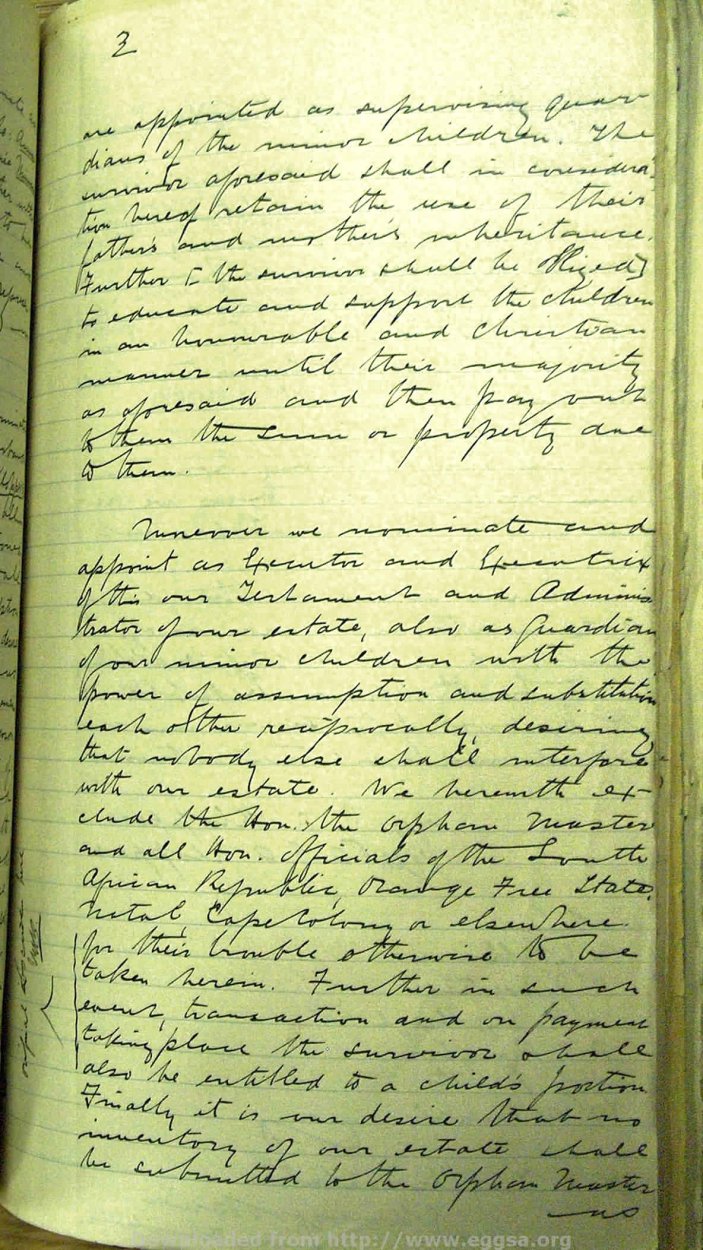 2
are appointed as supervising guar
dians of the minor children. The
survivor aforesaid shall in considera
tion hereof retain the use of their
father's and mother's inheritance.
Further the survivor shall be obliged
to educate and support the children
in an honourable and christian
manner until their majority
as aforesaid and then pay out
to them the sum or property due
to them.
Moreover we nominate and
appoint as Executor and Executrix
of this our Testament and Adminis
trator of our estate, also as Guardian
of our minor children with the
power of assumption and substitution
each other reciprocally, desiring
that nobody else shall interfere
with our estate. We herewith ex-
clude the Hon. the Orphan Master
and all Hon. Officials of the South
African Republic, Orange Free State,
Natal, Cape Colony or elsewhere
for their trouble otherwise to be
taken herein. Further in such
event, transaction and on payment
taking place the survivor shall
also be entitled to a child's portion
Finally it is our desire that no
inventory of our estate shall
be submitted to the Orphan Master
as
Downloaded from http://www.eggsa.org